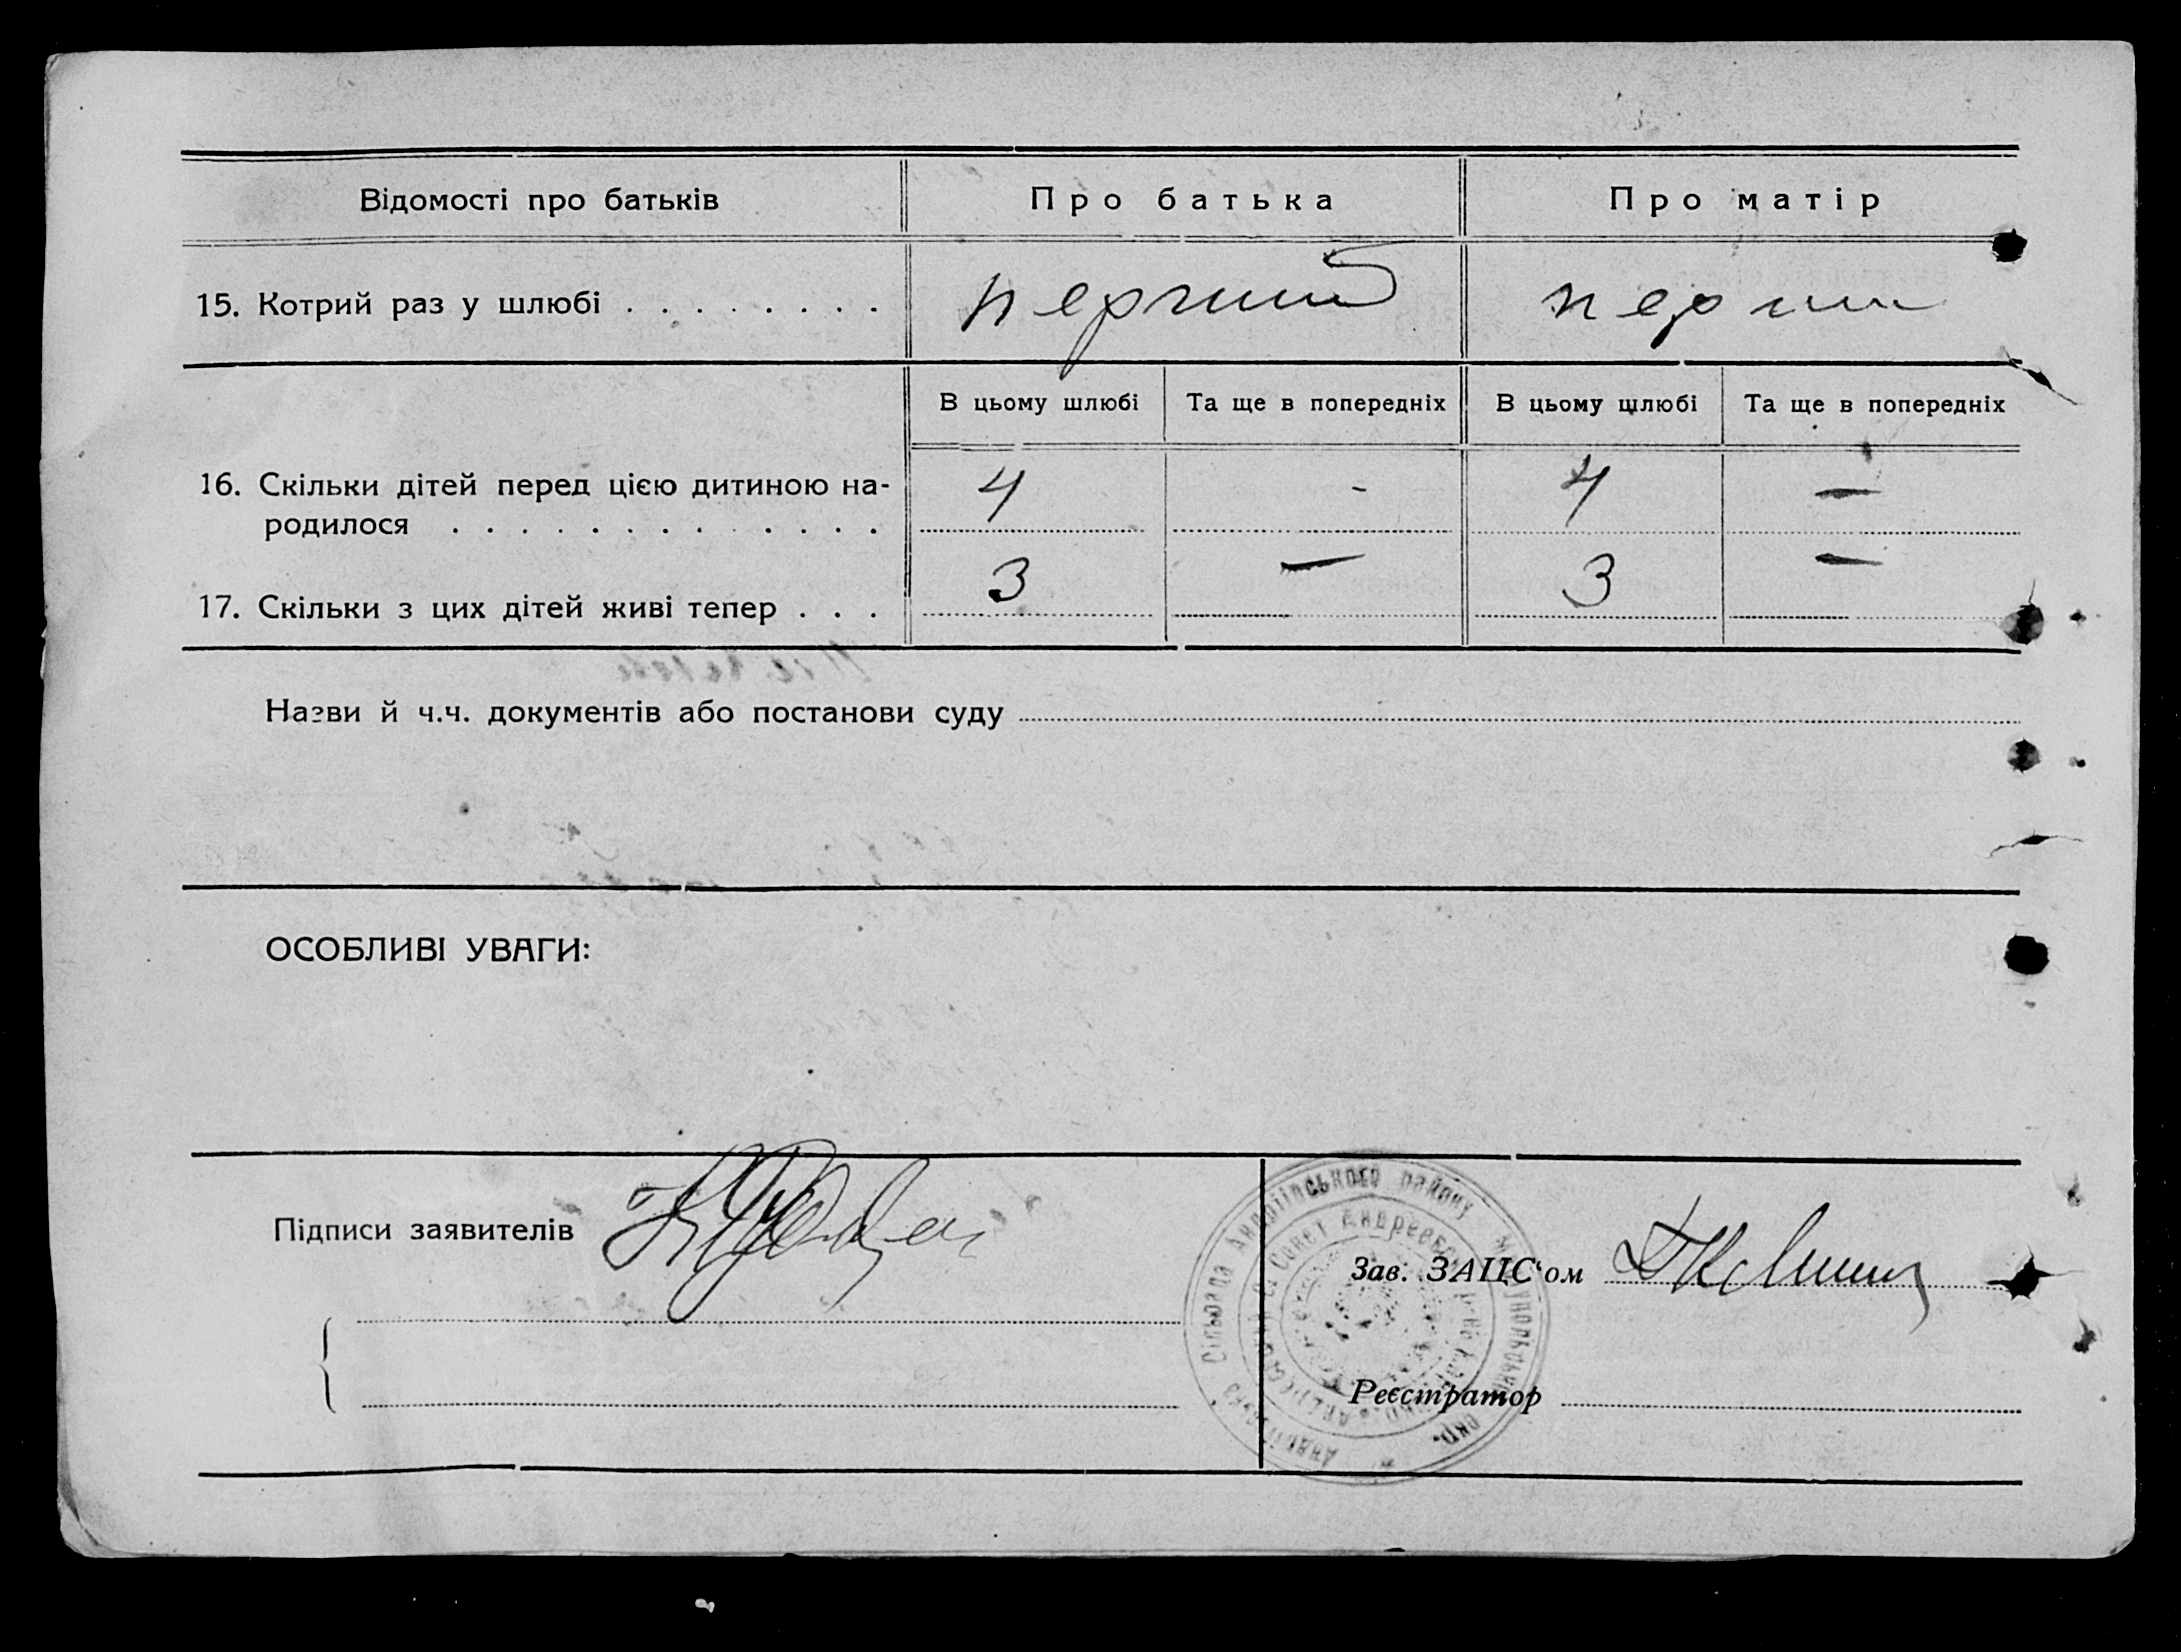 Відомості про батьків
Про батька
Про матір
15. Котрий раз у шлюбі . . . . . . . .
перший
перши
В цьому шлюбі
Та ще в попередніх
В цьому шлюбі
Та ще в попередніх
16. Скільки дітей перед цією дитиною на-
родилося . . . . . . . . . . . . .
4 - 4 —
17. Скільки з цих дітей живі тепер . . .
3 — 3 —
Назви й ч.ч. документів або постанови суду
ОСОБЛИВІ УВАГИ:
Підписи заявителів
Зав. ЗАЦС'ом
Реєстратор
Сільрада району
Совет
окр.